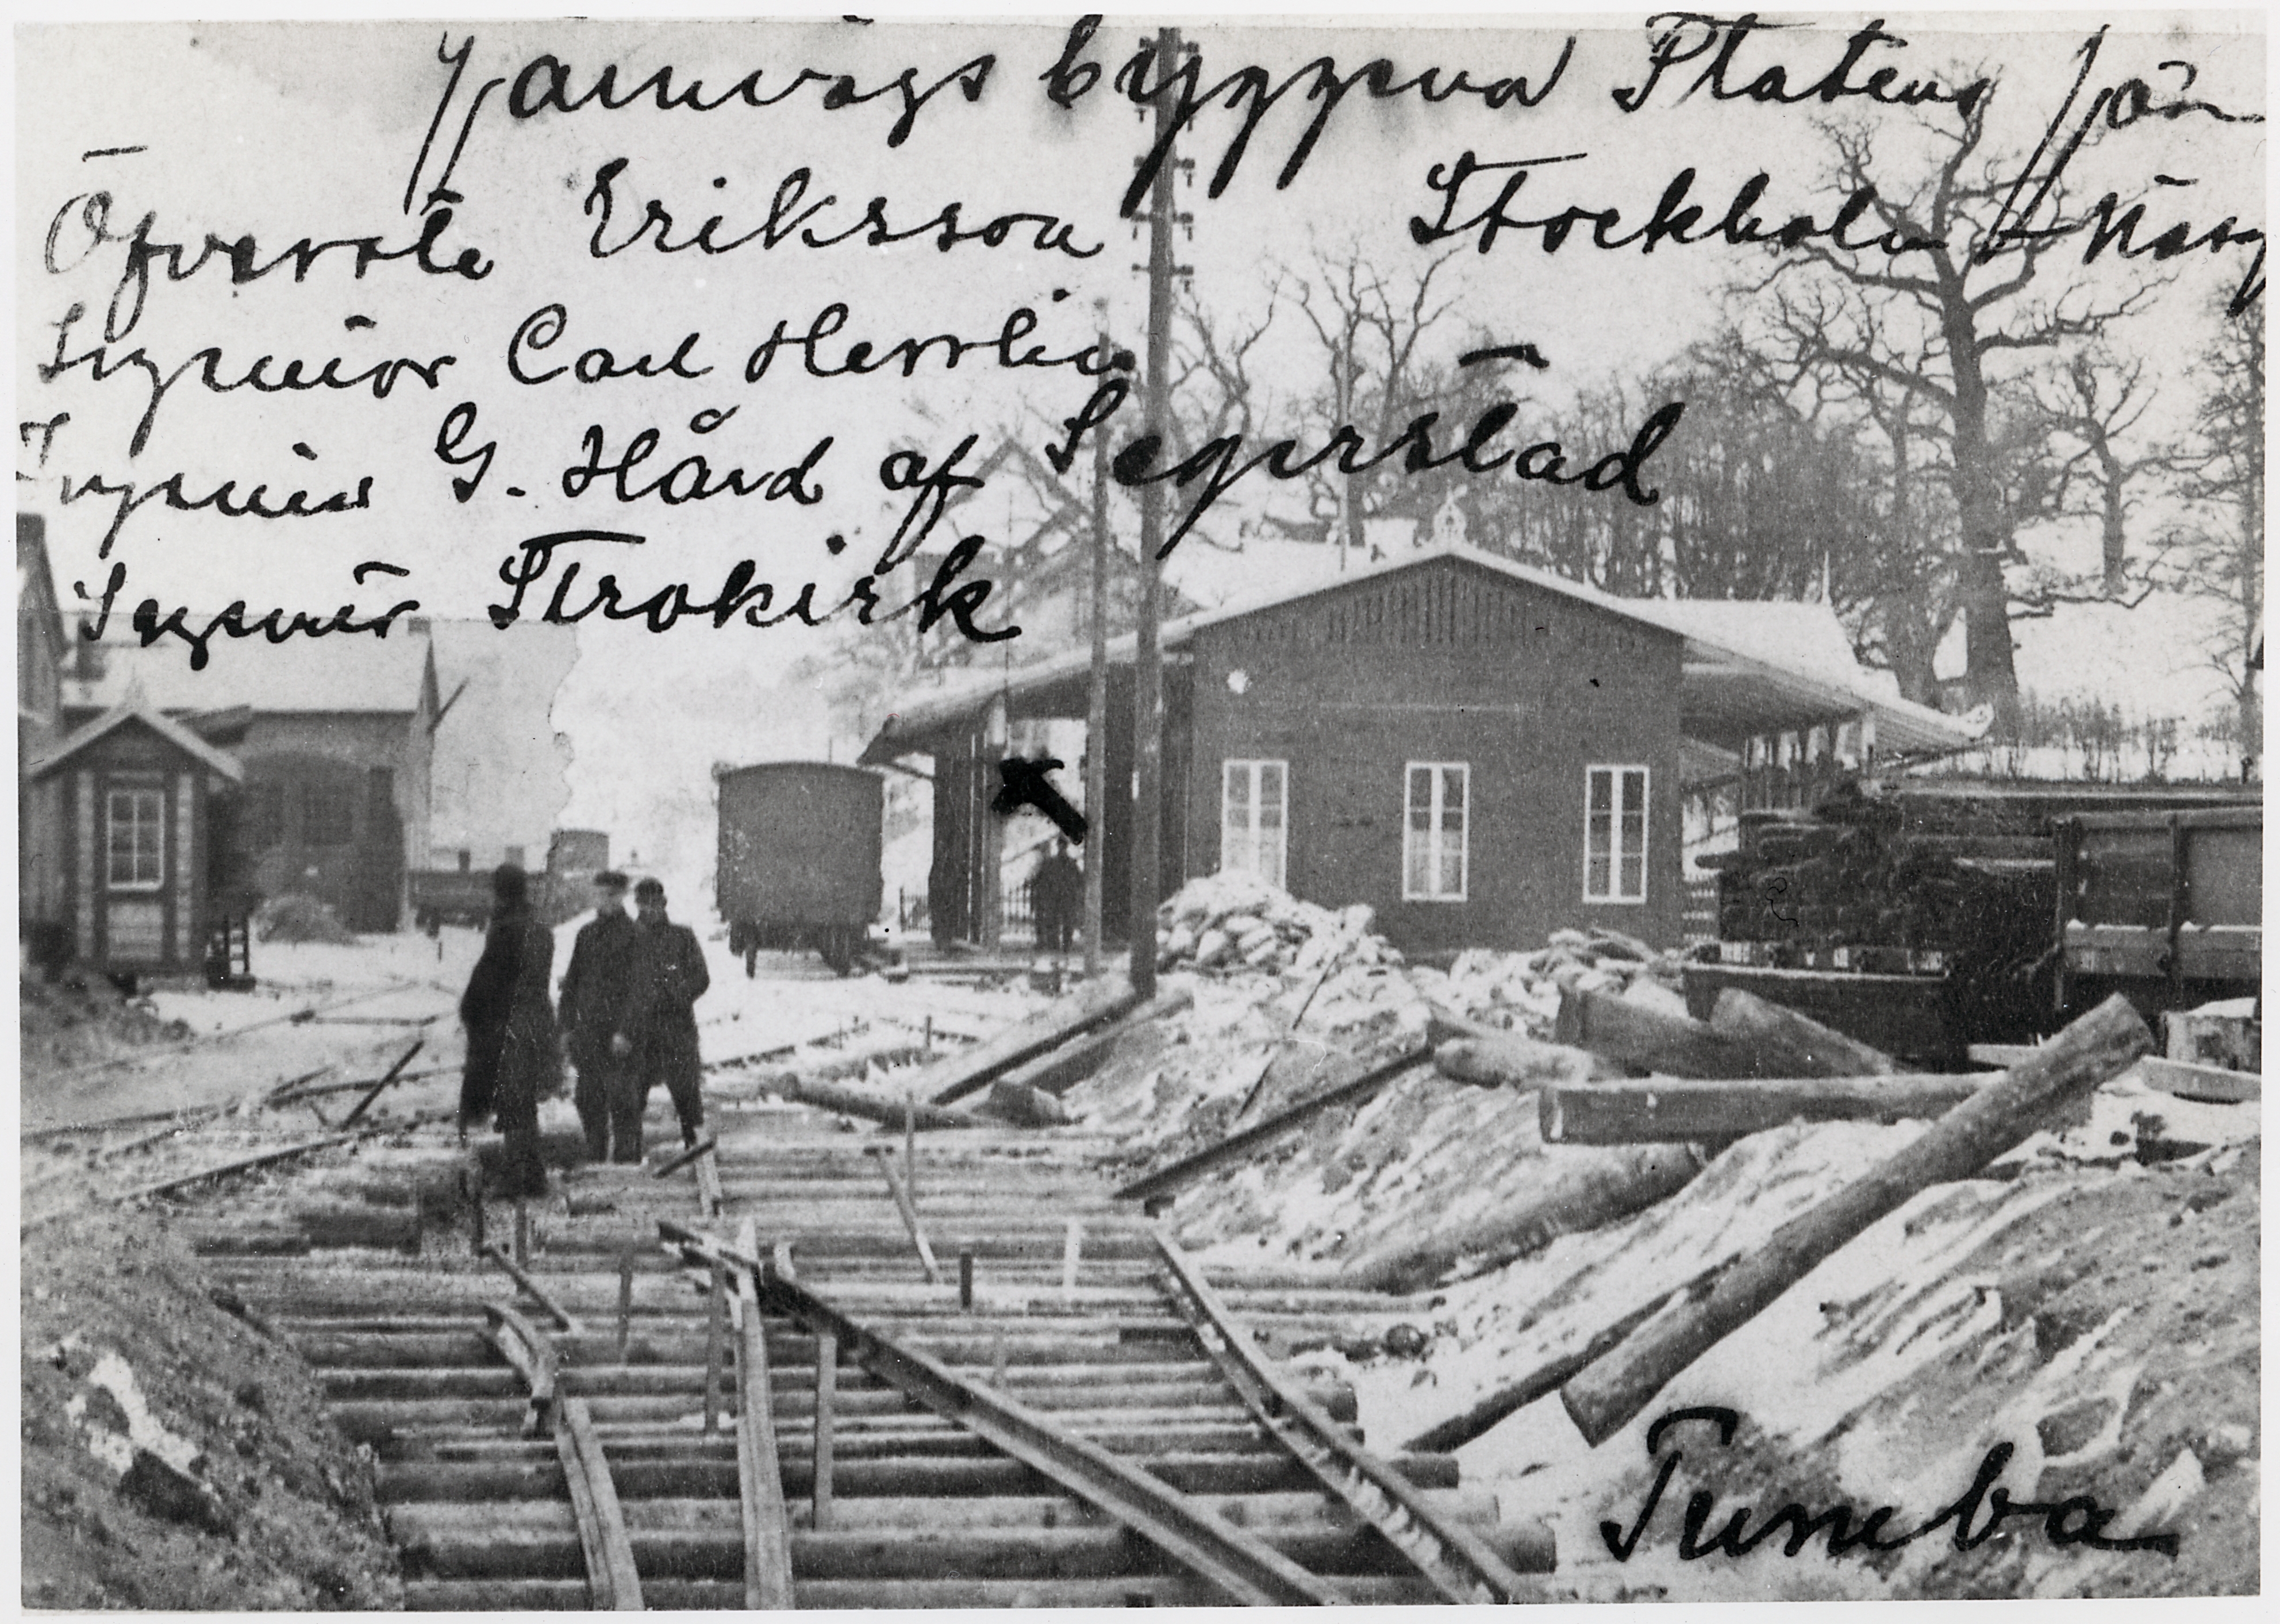 Järnvägs byggena Statens Jän
Öfverste Eriksson Stockholm – Norg
Ingeniör Carl
Ingeniör G. Hård af Segerstad
Ingeniör Strokirk
Tumba